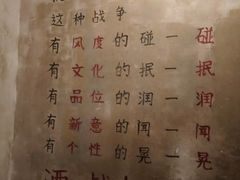 这种战争
有风度的碰一碰
有文化的抿一抿
有品位的润一润
有新意的闻一闻
有个性的晃一晃
酒战